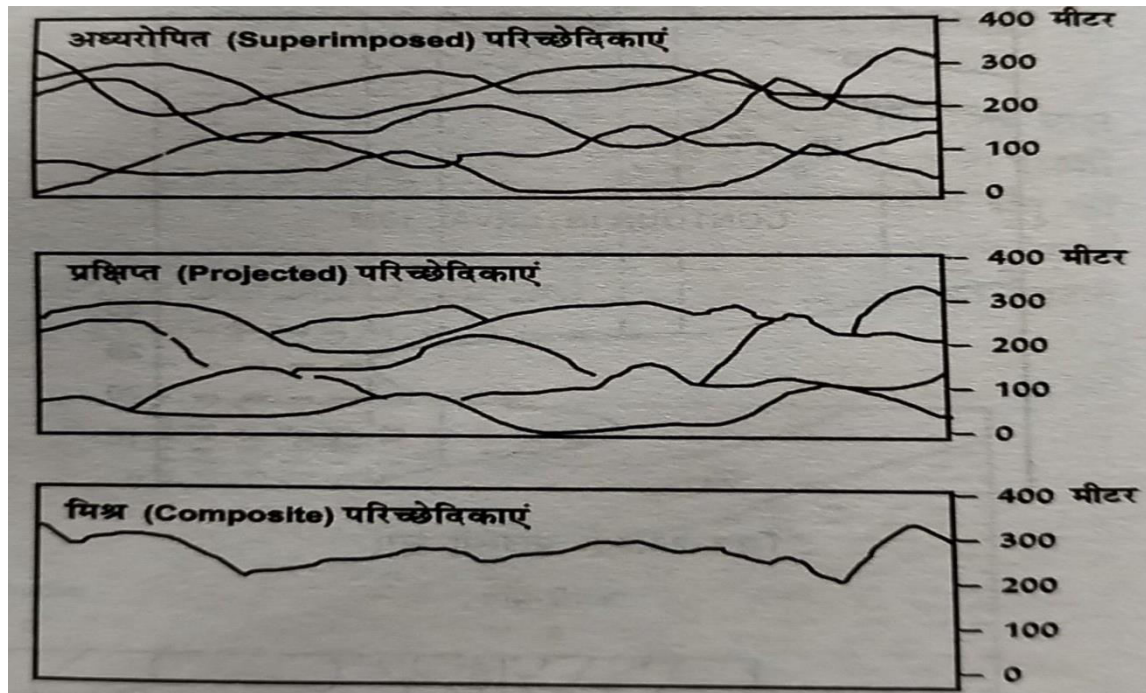 अध्यरोपित (Superimposed) परिच्छेदिकाएं
400 मीटर
300
200
100
0
प्रक्षिप्त (Projected) परिच्छेदिकाएं
400 मीटर
300
200
100
0
मिश्र (Composite) परिच्छेदिकाएं
400 मीटर
300
200
100
0